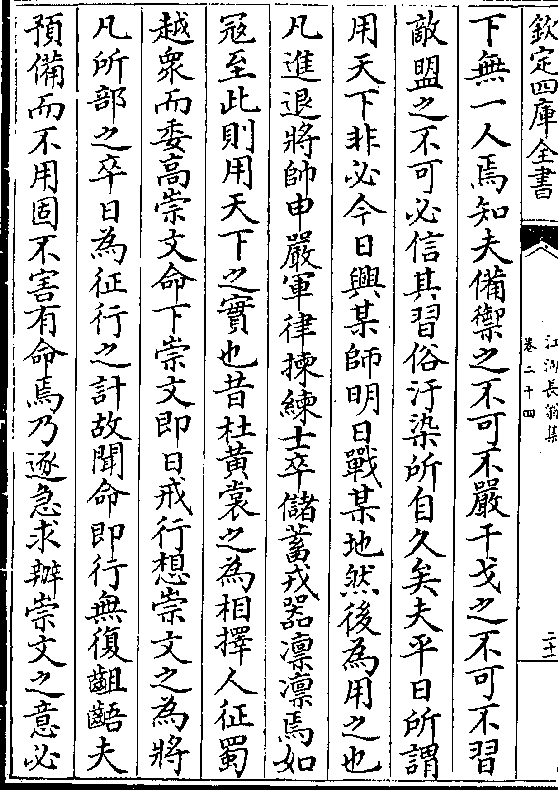 欽定四庫全書
江湖長翁集
卷二十四
二十二
下無一人焉知夫備禦之不可不嚴干戈之不可不習
敵盟之不可必信其習俗汙染所自久矣夫平日所謂
用天下非必今日興某師明日戰某地然後為用之也
凡進退將帥申嚴軍律揀練士卒儲蓄戎器凛凛焉如
冦至此則用天下之實也昔杜黃裳之為相擇人征蜀
越衆而委高崇文命下崇文即日戒行想崇文之為將
凡所部之卒日為征行之計故聞命即行無復齟齬夫
預備而不用固不害有命焉乃逐急求辦崇文之意必